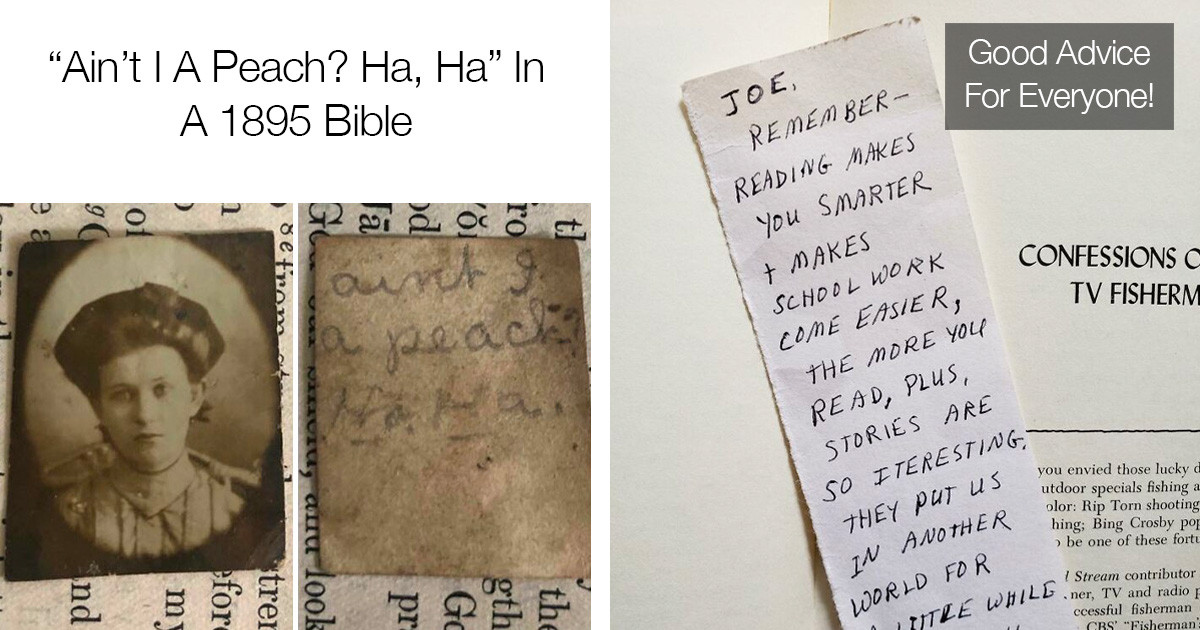 “Ain’t I A Peach? Ha, Ha” In
A 1895 Bible
aint I
a peach
Ha Ha.
Good Advice
For Everyone!
JOE,
REMEMBER—
READING MAKES
YOU SMARTER
+ MAKES
SCHOOL WORK
COME EASIER,
THE MORE YOU
READ, PLUS,
STORIES ARE
SO ITERESTING.
THEY PUT US
IN ANOTHER
WORLD FOR
A LITTLE WHILE
CONFESSIONS O
TV FISHERM
you envied those lucky d
utdoor specials fishing a
olor: Rip Torn shooting
hing; Bing Crosby pop
be one of these fortu
Stream contributor
ner, TV and radio p
ccessful fisherman
CBS' “Fisherman